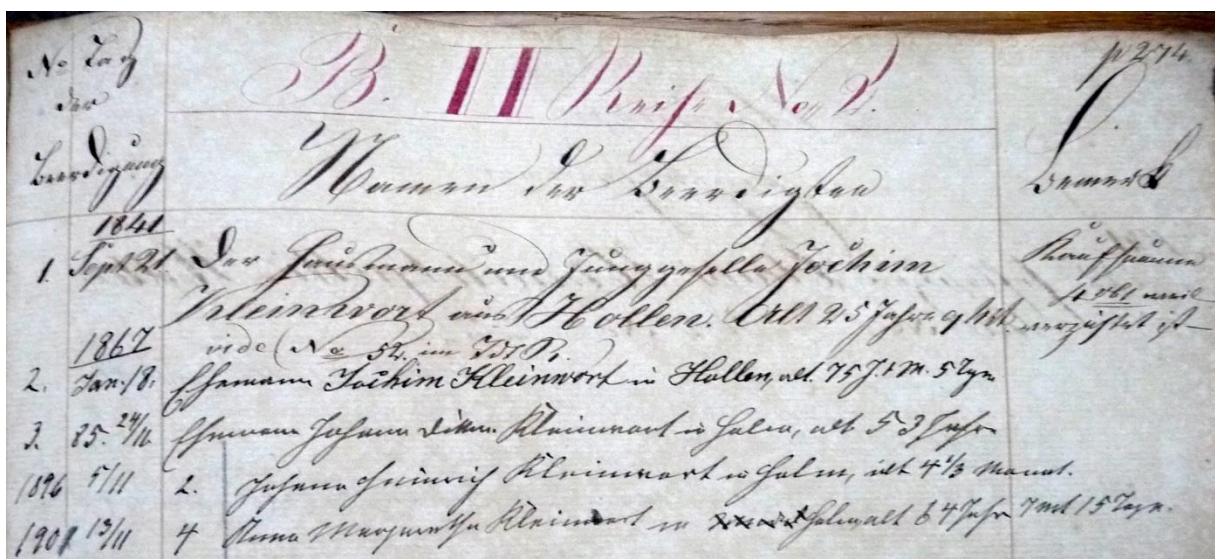 p 274.
No Tag der Beerdigung
B. II Reihe No 2.
Namen der Beerdigten
Bemerk
1841
1. Sept 21. Der Hausmann und Junggeselle Jochim
Kaufsumme
Kleinwort aus Hollen. Alt 25 Jahre 9 Mt.
weil
verzichtet ist
vide (No 52. im
1867
2. Jan. 18. Ehemann Jochim Kleinwort in Hollen, alt. 75 J. 1 M. 5 Tage
3. 85. 24/11 Ehemann Johann Kleinwort in Holen, alt 53 Jahr
1896 5/11 2. Johann Heinrich Kleinwort in Holm, alt 4 1/3 Monat.
1901 13/11 4 Anna Margaretha Kleinwort in Holen alt 64 Jahr 7 mt 15 Tage.